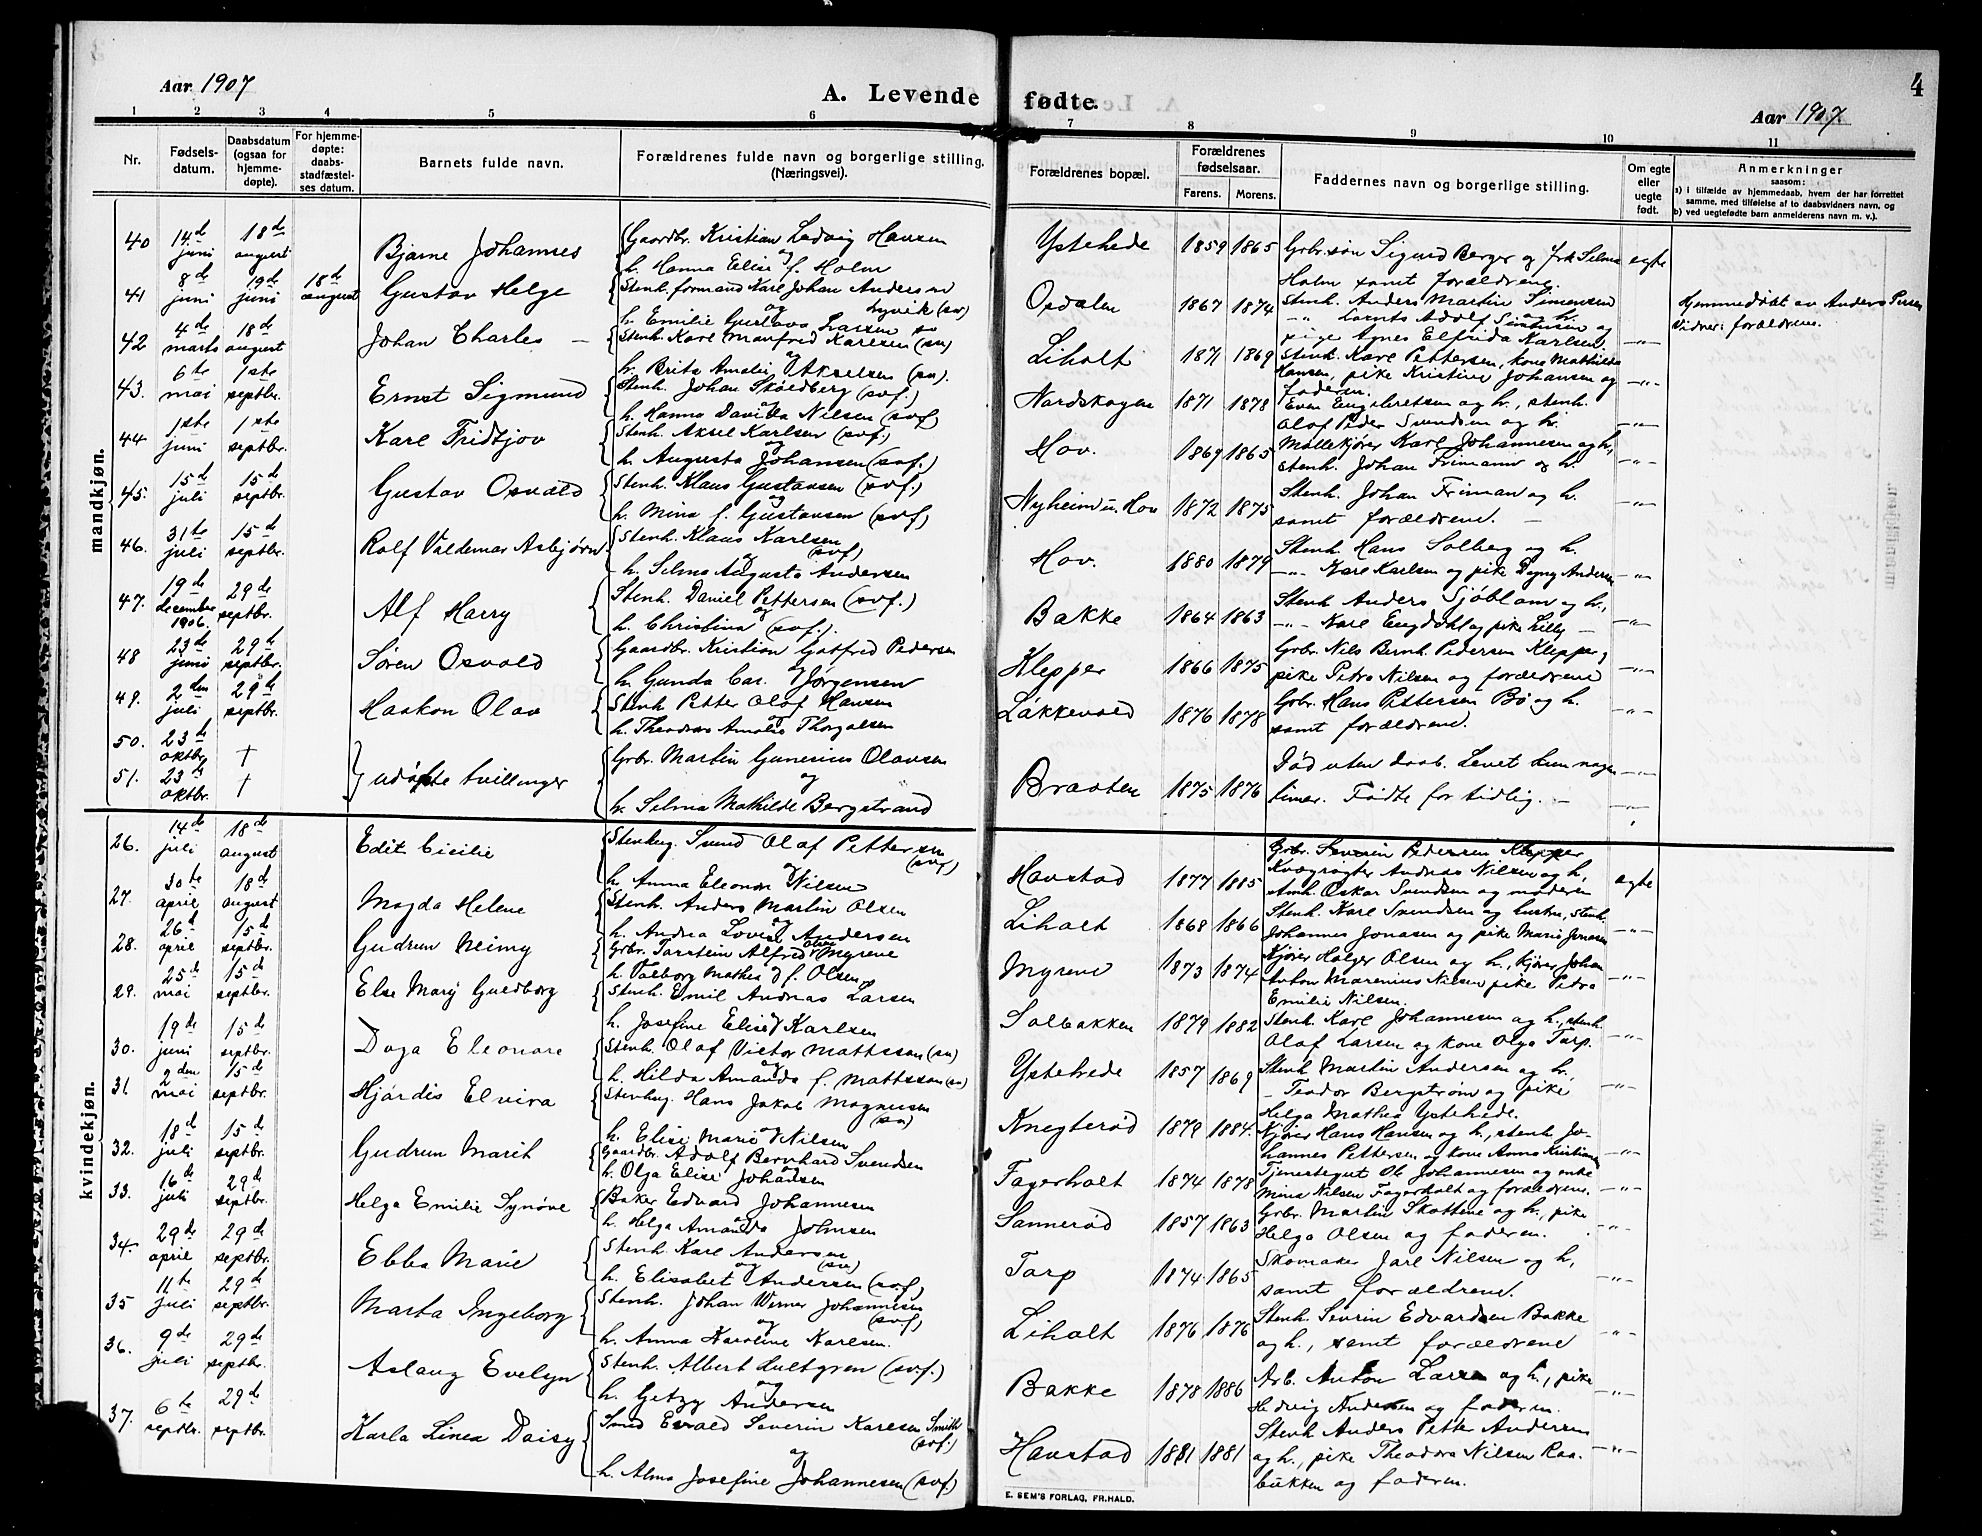 Aar 1907
A. Levende fødte.
4
Aar 1907.
1 2 3 4 5 6 7 8 9 10 11
Nr.
Fødsels-
datum.
Daabsdatum
(ogsaa for
hjemme-
døpte).
For hjemme-
døpte:
daabs-
stadfæstel-
ses datum.
Barnets fulde navn.
Forældrenes fulde navn og borgerlige stilling.
(Næringsvei).
Forældrenes bopæl.
Forældrenes
fødselsaar.
Farens. Morens.
Faddernes navn og borgerlige stilling.
Om egte
eller
uegte
født.
Anmerkninger
saasom:
a) i tilfælde av hjemmedaab, hvem der har forrettet
samme, med tilføielse af to daabsvidners navn, og
b) ved uegtefødte barn anmelderens navn m. v.).
mandkjøn.
40 14de juni 18de august Bjarne Johannes
Gaardbr. Kristian Ludvig Hansen
og
h. Hanna Elise f. Holm
Ystehede 1859 1865
Grbr.søn Sigurd Berger og frk Selma
Holm samt forældrene.
egte
41 8de juni 19de juni 18de august Gustav Helge
Stenh.formand Karl Johan Andersen
og Lyvik (sv)
h. Emilie Gustava Larsen sv
Opdalen 1867 1874
Stenh. Anders Martin Simensend
-"- Lornts Adolf Simensen og
pige Agnes Elfrida Karlsen.
-"-
Hjemmedøbt av Anders Persen
Vidner: forældrene.
42 4de marts 18de august Johan Charles –
Stenh. Karl Manfred Karlsen (sv)
og
h. Brita Amalie Akselsen (sv).
Liholt 1871 1869
Stenh. Karl Pettersen, kone Mathilde
Hansen, pike Kristine Johansen og
faderen.
-"-
43. 6te mai 1ste septbr. Ernst Sigmund
Stenh. Johan Skoldberg (svf.)
og
h. Hanna Davida Nilsen (svf)
Nordskogen 1871 1878
Even Engebretsen og h., stenh.
Olof Peder Svendsen og h.
-"-
44 1ste juni 1ste septbr. Karl Fridtjov
Stenh. Aksel Karlsen (svf.)
og
h. Augusta Johansen (svf.)
Hov. 1869 1865
Møllekjører Karl Johannesen og h,
stenh. Johan Frimann og h.
-"-
45. 15de juli 15de septbr. Gustav Osvald
Stenh. Klaus Gustavsen (svf.)
og
h. Mina f. Gustavsen (svf)
Nyheim u. Hov 1872 1875
Stenh. Johan Friman og h.
samt forældrene. –
-"-
46. 31te juli 15de septbr. Rolf Valdemar Asbjørn
Stenh. Klaus Karlsen
og (svf)
h. Selma Augusta Andersen
Hov. 1880 1879
Stenh. Hans Solberg og h.
-"- Karl Karlsen og pike Dagny Andersen
-"-
47. 19de december 1906. 29de septbr. Alf Harry
Stenh. Daniel Pettersen (svf.)
og
h. Christina (svf.).
Bakke 1864 1863
Stenh Anders Sjöblom og h,
-"- Karl Engdahl og pike Lilly –
-"-
48 23de juni 29de septbr. Søren Osvald
Gaardbr. Kristian Gotfred Pedersen
og
h. Gunda Car. Jørgensen
Klepper 1866 1875
Grbr. Nils Bernh. Pedersen Klepper,
pike Petra Nilsen og forældrene
-"-
49. 2den juli 29de septbr. Haakon Olav
Stenh Petter Olaf Hansen
og
h. Theodora Amalie Thorgalsen
Løkkevold 1876 1878
Grbr. Hans Pettersen Bø og h.
samt forældrene.
-"-
50. 23de oktbr. †
51. 23de oktbr. †
udøpte tvillinger
Grbr. Martin Gunerius Olavsen
og
h. Selma Mathilde Bergstrand
Braaten 1875 1876
Død uten daab. Levet kun nogen
timer. Fødte for tidlig. –
-"-
-"-
kvindekjøn.
26. 14de juli 18de august Edit Cicilie
Stenhug. Svend Olaf Pettersen
og (svf)
h. Anna Eleonora Nilsen
Havstad 1877 1885
Grbr. Severin Pedersen Klepper
Kvægrøgter Andreas Nilsen og h,
Arnh. Oskar Svendsen og moderen
egte
27. 30te april 18de august Magda Helene
Stenh. Anders Martin Olsen
og
h. Andrea Lovise Andersen
Liholt 1868 1866
Stenh. Karl Svendsen og hustru, stenh.
Johannes Jonasen og pike Marie Jonasen
-"-
28. 26de april 15de septbr. Gudrun Neimy
Grbr. Torstein Alfred Olsen Myrene
og
h. Valborg Mathea f. Olsen
Myrene 1873 1874
Kjører Holger Olsen og h., kjører Johan
Anton Marenius Nilsen pike Petra
Emilie Nilsen.
-"-
29. 25de mai 15de septbr. Else Mary Guldborg
Stenh. Emil Andreas Larsen
og
h. Josefine Elise Karlsen
Solbakken 1879 1882
Stenh. Karl Johannesen og h., stenh.
Olaf Larsen og kone Olga Torp.
-"-
30. 19de juni 15de septbr. Daga Eleonore
Stenh. Olaf Victor Mattsson (sv)
og
h. Hilda Amanda f. Mattsson (sv)
Ystehede 1857 1869
Stenh Martin Andersen og h.
– Teodor Bergstrøm og pike
Helga Mathea Ystehede.
-"-
31 2den mai 15de septbr. Hjördis Elvira
Stenhug. Hans Jakob Magnusen
og (sv)
h. Elise Marie Nilsen
Knegterød 1879 1884.
Kjører Hans Hansen og h., stenh. Jo-
hannes Pettersen og kone Anna Kristiansen
-"-
32. 18de juli 15de septbr. Gudrun Marit
Gaardbr. Adolf Bernhard Svendsen
og
h. Olga Elise Johansen
Fagerholt 1874 1878
Tjenestegut Ole Johannesen og enke
Mina Nilsen Fagerholt og forældrene.
-"-
33. 16de juli 29de septbr. Helga Emilie Synøve
Baker Edvard Johannesen
og
h. Helga Amanda Johnsen
Sannerød 1857 1863
Grbr. Martin Skottene og h., pike
Helga Olsen og faderen.
-"-
34. 29de april 29de septbr. Ebba Marie
Stenh. Karl Andersen
og (sv)
h. Elisabet Andersen (svf.)
Torp 1874 1865
Skomaker Jarl Nilsen og h,
samt forældrene.
-"-
35 11te juli 29de septbr. Marta Ingeborg
Stenh. Johan Werner Johannesen
og (svf)
h. Anna Karoline Karlsen.
Liholt 1876 1876
Stenh. Sevrin Edvardsen Bakke
og h., samt forældrene
-"-
36. 9de juli 29de septbr. Aslaug Evelyn
Stenh. Albert Lultgren (svf.)
og
h. Getzy Andersen
Bakke 1878 1886
Arb. Anton Larsen og h., pike
Hedvig Andersen og faderen.
-"-
37. 6te septbr. 29de septbr. Karla Linea Daisy
Smed Evald Severin Karlsen Smith
og (svf.)
h. Alma Josefine Johannesen (svf.)
Havstad 1881 1881
Stenh Anders Petter Andersen
og h., pike Theodora Nilsen Ras-
bukken og faderen.
-"-
E. SEM'S FORLAG, FR.HALD.